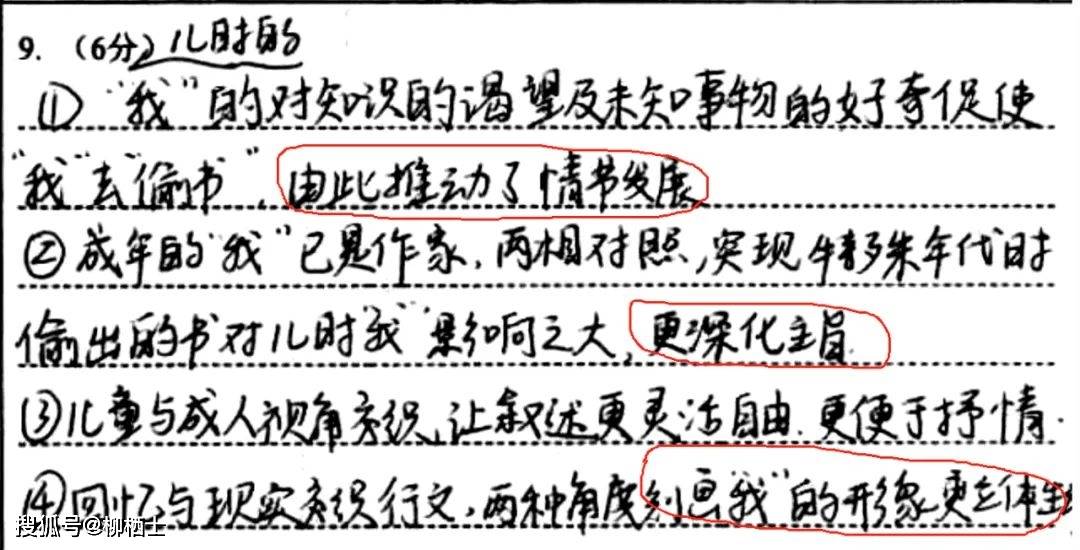 9. (6分) 儿时的
① "我"的对知识的渴望及未知事物的好奇促使
"我"去"偷书",由此推动了情节发展
② 成年的"我"已是作家,两相对照,突现特殊年代时
偷出的书对儿时"我"影响之大,更深化主旨.
③ 儿童与成人视角交织,让叙述更灵活自由.更便于抒情.
④ 回忆与现实交织行文,两种角度刻画"我"的形象更立体生
搜狐号@柳栖士